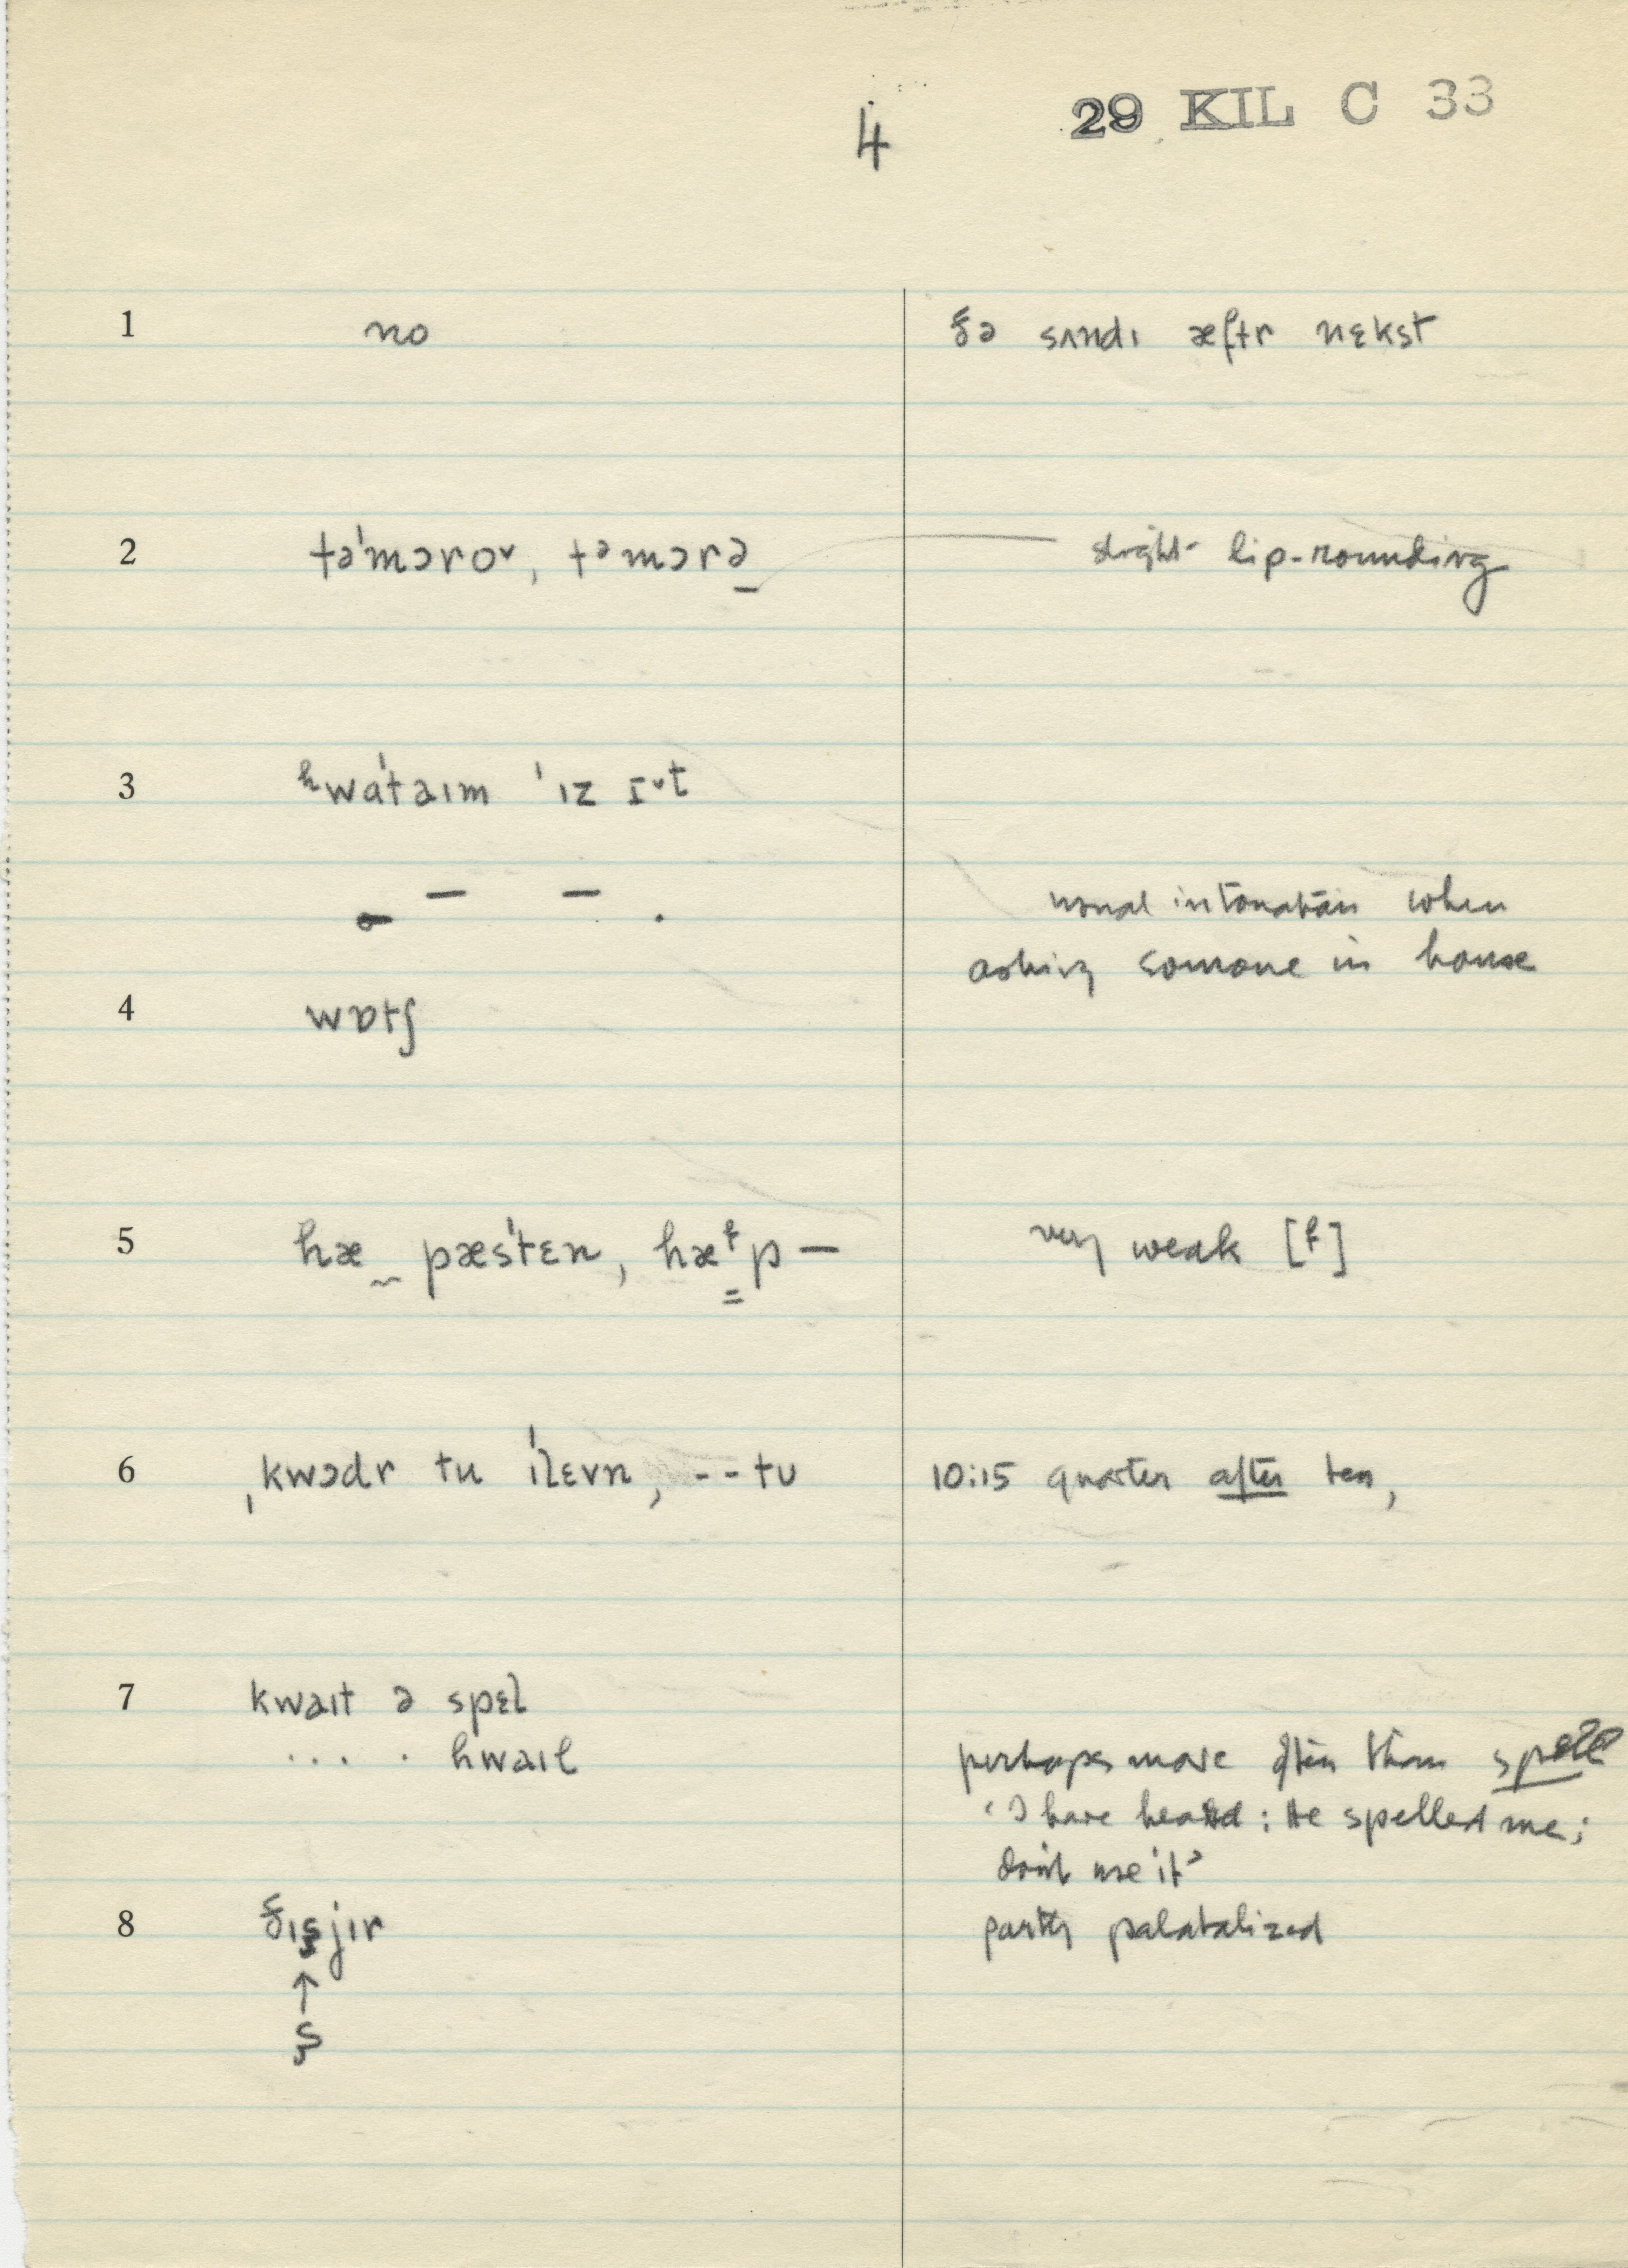 4 29 KIL C 33
1 no ðə sʌndɪ æftr nɛkst
2 təˈmɔroᵛ, tᵊmɔrə̱ slight lip-rounding
3 ʰwɑˈtaɪm ˈɪz ɪᵛt
usual intonation when
asking someone in house
4 wɒtʃ
5 hæ‿pæsˈtɛn, hæᶠp — very weak [f]
6 ˌkwɔdr tu ɪˈlɛvn, --tʊ 10:15 quarter after ten,
7 kwaɪt ə spɛl
... . hwaɪl perhaps more often than spell
‘I have heard: He spelled me;
don't use it’
8 ðɪşjɪr partly palatalized
↑
ş